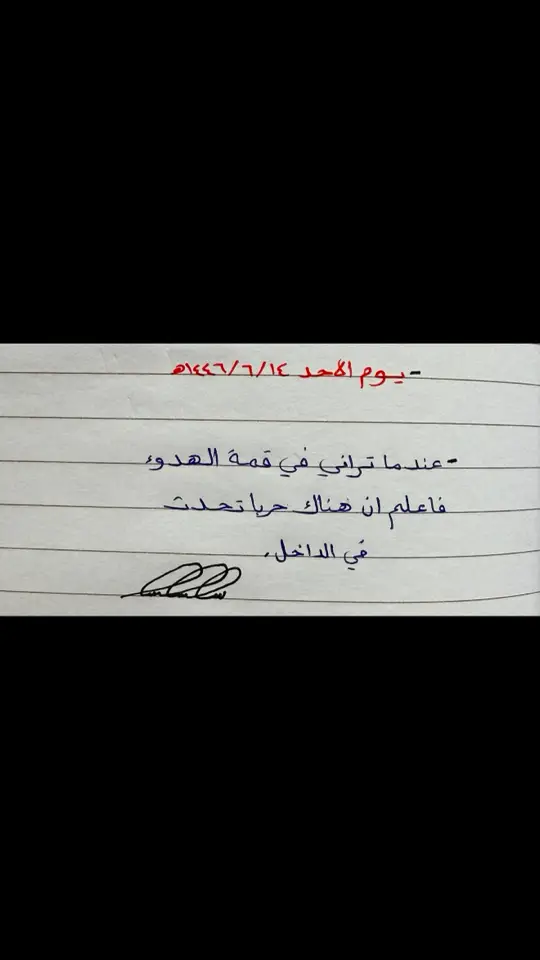 - يوم الأحد ١٤٤٦/٦/١٤هـ
- عندما تراني في قمة الهدوء
فاعلم ان هناك حربا تحدث
في الداخل.